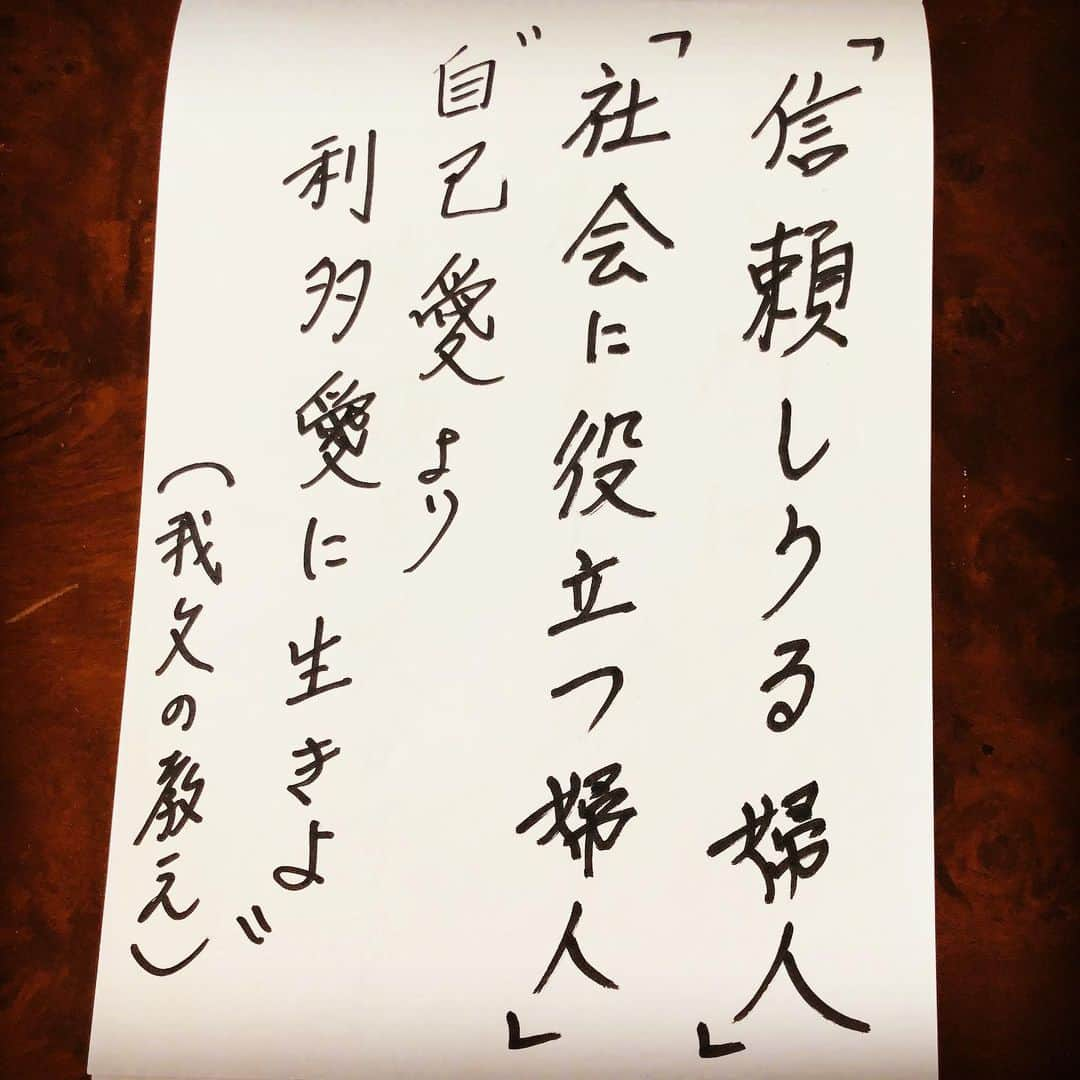 「信頼しうる婦人」
「社会に役立つ婦人」
"自己愛より
利多愛に生きよ"
(我父の教え)